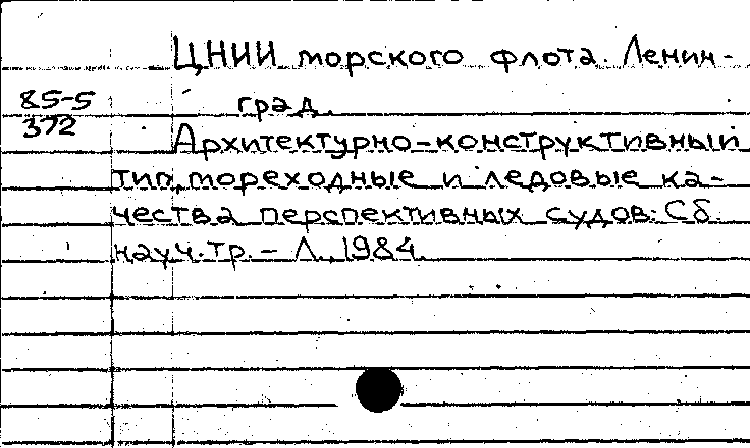 ЦНИИ морского флота. Ленин-
град.
85-5
372
Архитектурно-конструктивный
тип, мореходные и ледовые ка-
чества перспективных судов: Сб.
науч. тр. - Л., 1984.